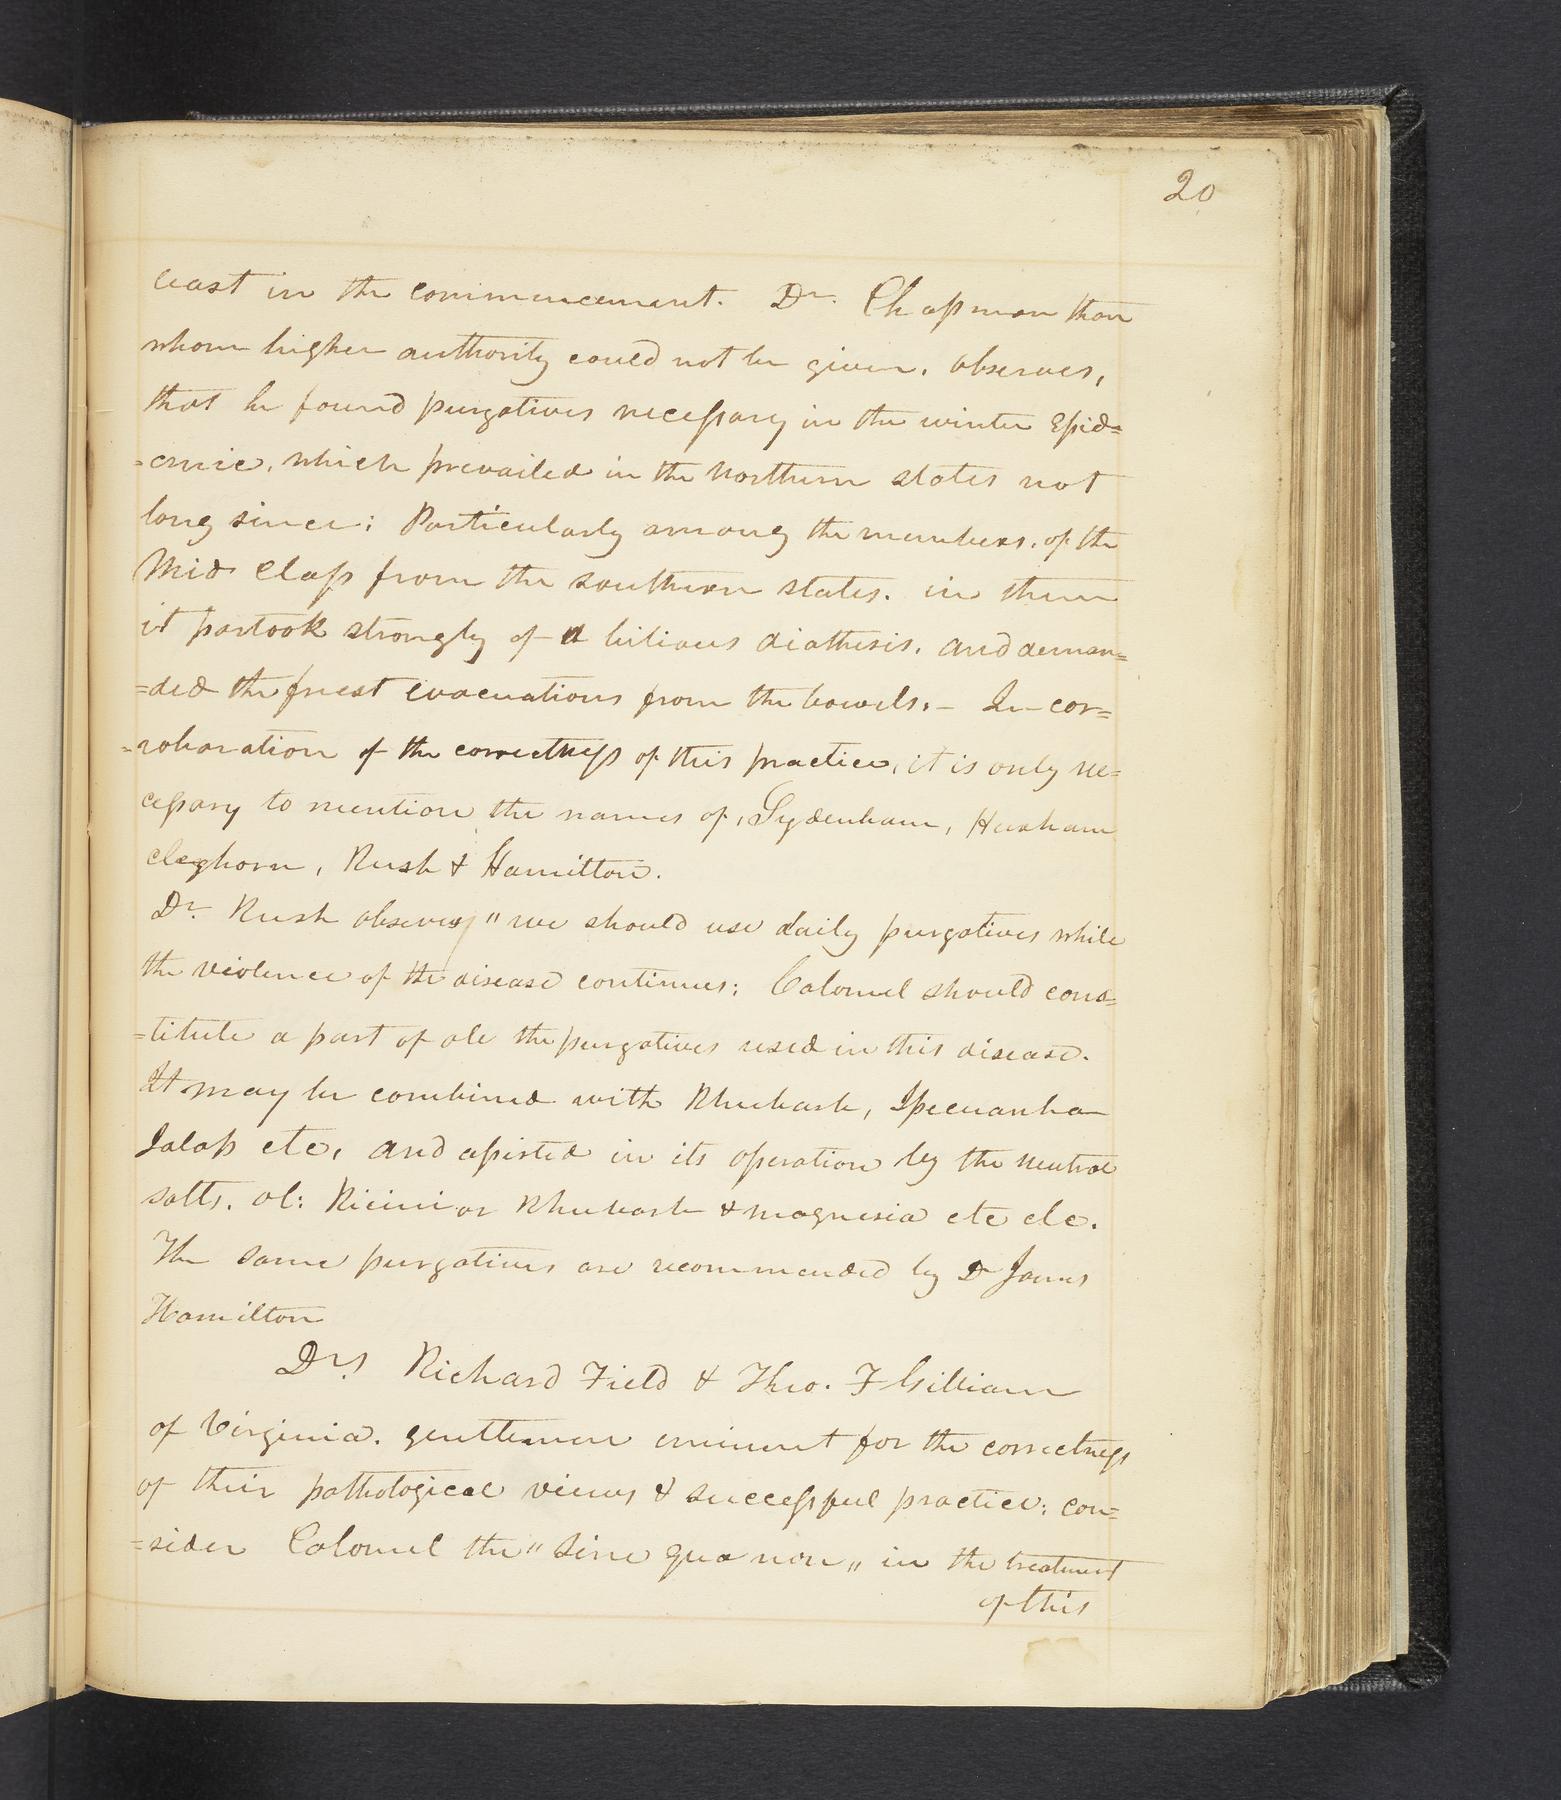 20
least in the commencement. Dr. Chapman than
whom higher authority could not be given, observes,
that he found purgatives necessary in the winter Epid=
=emic, which prevailed in the Northern states not
long since; Particularly among the members, of the
Mid Class from the southern states. in them
it partook strongly of a bilious diathesis, and deman=
=ded the freest evacuations from the bowels. – In cor=
=roboration of the correctness of this practice, it is only ne=
cessary to mention the names of, Sydenham, Huxham
Cleghorn, Rush & Hamilton.
Dr. Rush observes "we should use daily purgatives while
the violence of the disease continues; Calomel should cons=
=titute a part of all the purgatives used in this disease.
It may be combined with Rhubarb, Ipecuanha
Jalap etc, and assisted in its operation by the neutral
salts. ol: Ricini or Rhubarb & magnesia etc etc.
The same purgatives are recommended by Dr James
Hamilton
Drs Richard Field & Theo. F Gilliam
of Virginia. gentlemen eminent for the correctness
of their pathological views & successful practice; con=
=sider Calomel the "Sine qua non" in the treatment
of this